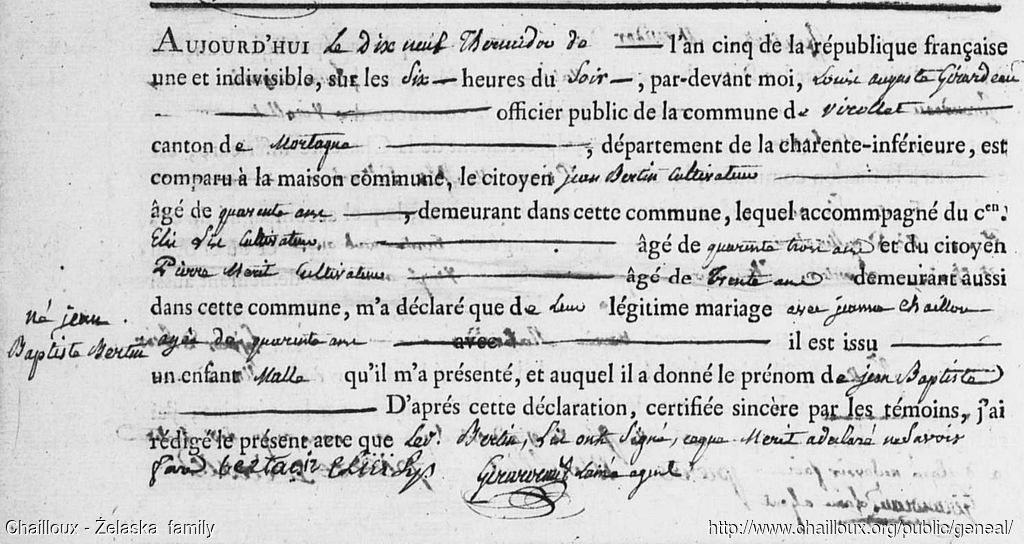 AUJOURD'HUI Le Dix neuf Thermidor de l'an cinq de la république française
une et indivisible, sur les Six heures du Soir, par-devant moi, Louis auguste Girardeau
officier public de la commune de virollet
canton de Mortagne, département de la charente-inférieure, est
comparu à la maison commune, le citoyen jean Bertin Cultivateur
âgé de quarente ans, demeurant dans cette commune, lequel accommpagné du cen.
Elie Cultivateur, âgé de quarente trois ans et du citoyen
Pierre Merit Cultivateur âgé de trente ans demeurant aussi
dans cette commune, m'a déclaré que de Leur légitime mariage avec jeanne Chaillou
né jean Baptiste Bertin
agée de quarente ans avec il est issu
un enfant Malle qu'il m'a présenté, et auquel il a donné le prénom de jean Baptiste
D'aprés cette déclaration, certifiée sincère par les témoins, j'ai
rédigé le présent acte que Bertin, ont Signé, ceque Merit adeclaré ne Savoir
faire
Girardeau agent
Chailloux - Żelaska family
http://www.chailloux.org/public/geneal/